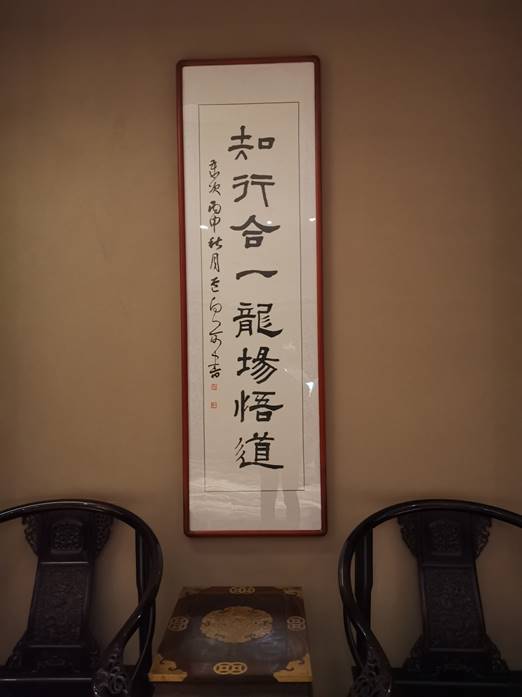 知行合一龍場悟道
歲次丙申秋月